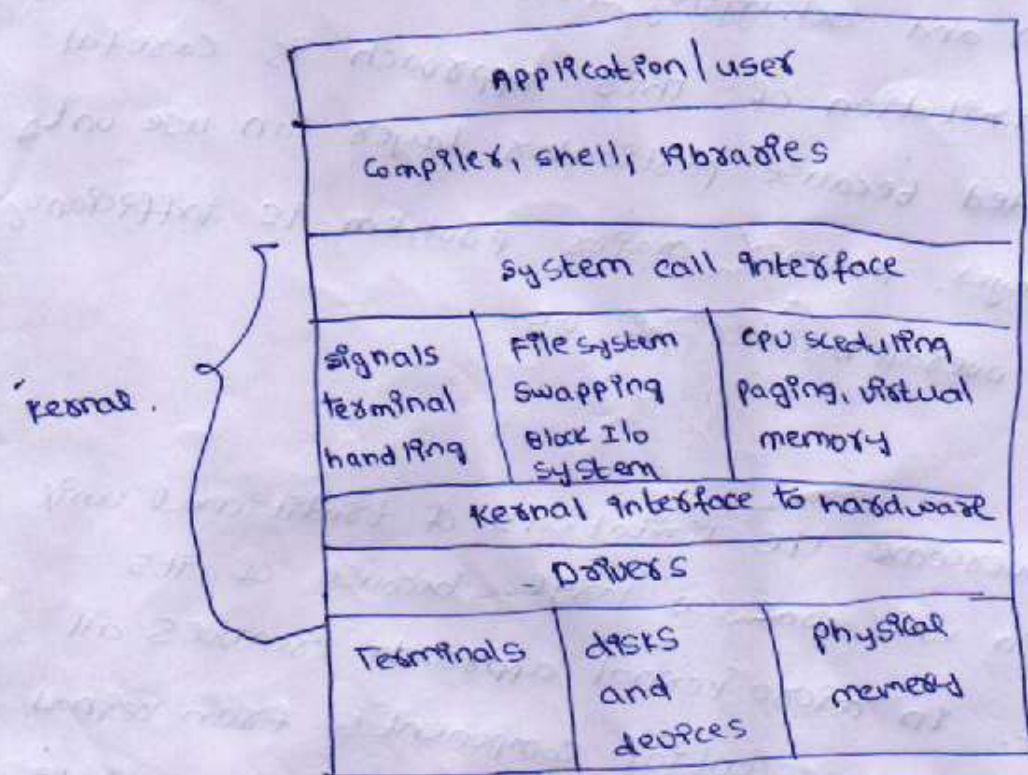 Application / user
Compiler, shell, libraries
system call interface
signals
terminal
handling
File system
swapping
Block I/o
system
CPU sceduling
paging, virtual
memory
kernal.
Kernal interface to hardware
Drivers
Terminals
disks
and
devices
physical
memory